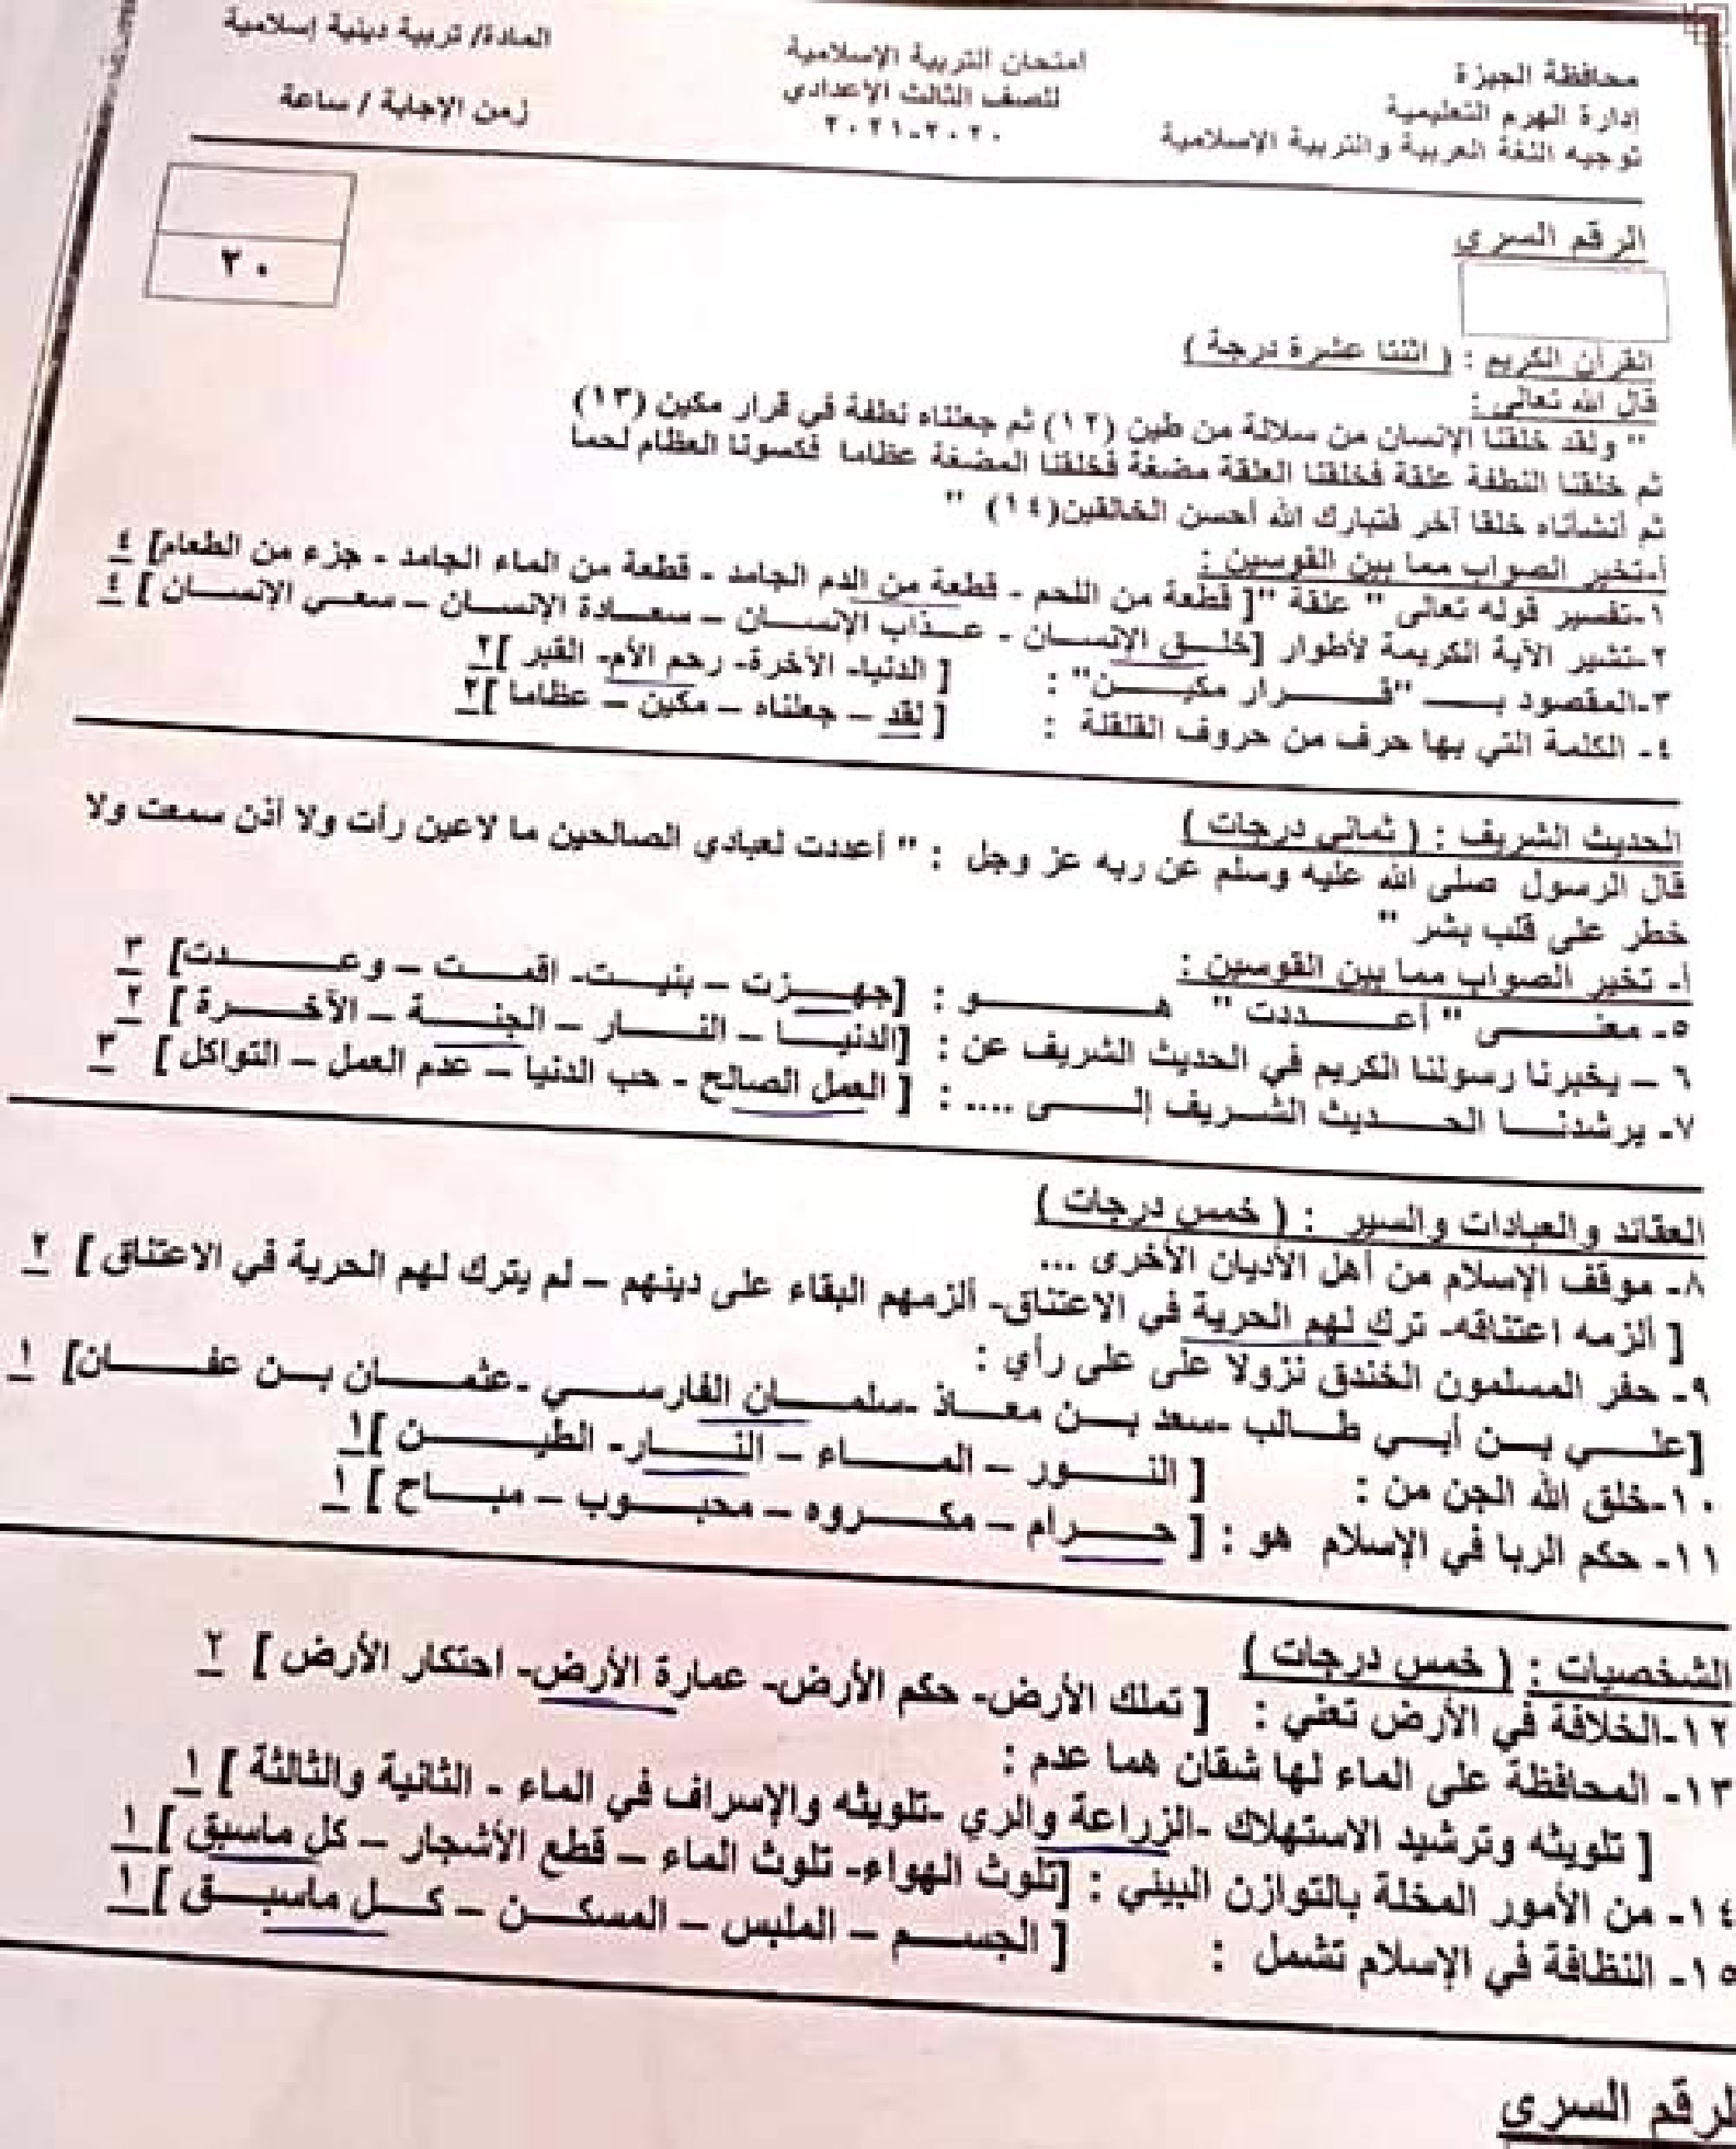 محافظة الجيزة
إدارة الهرم التعليمية
توجيه اللغة العربية والتربية الإسلامية
امتحان التربية الإسلامية
للصف الثالث الإعدادي
٢٠٢٠-٢٠٢١
المادة/ تربية دينية إسلامية
زمن الإجابة / ساعة
الرقم السري
٢٠
القرآن الكريم : ( اثنتا عشرة درجة )
قال الله تعالى :
" ولقد خلقنا الإنسان من سلالة من طين (١٢) ثم جعلناه نطفة في قرار مكين (١٣)
ثم خلقنا النطفة علقة فخلقنا العلقة مضغة فخلقنا المضغة عظاما فكسونا العظام لحما
ثم أنشأناه خلقا آخر فتبارك الله أحسن الخالقين(١٤) "
أ-تخير الصواب مما بين القوسين :
١-تفسير قوله تعالى " علقة "[ قطعة من اللحم - قطعة من الدم الجامد - قطعة من الماء الجامد - جزء من الطعام] ٤
٢-تشير الآية الكريمة لأطوار [خلق الإنسان - عذاب الإنسان – سعادة الإنسان – سعي الإنسان ] ٤
٣-المقصود بـ "قرار مكين" : [ الدنيا- الأخرة- رحم الأم- القبر ]٢
٤- الكلمة التي بها حرف من حروف القلقلة : [ لقد – جعلناه – مكين – عظاما ]٢
الحديث الشريف : ( ثماني درجات )
قال الرسول صلى الله عليه وسلم عن ربه عز وجل : " أعددت لعبادي الصالحين ما لاعين رأت ولا أذن سمعت ولا
خطر على قلب بشر "
أ- تخير الصواب مما بين القوسين :
٥- معنى " أعددت " هو : [جهزت – بنيت- اقمت – وعدت] ٣
٦ – يخبرنا رسولنا الكريم في الحديث الشريف عن : [الدنيا – النار – الجنة – الآخرة ] ٢
٧- يرشدنا الحديث الشريف إلى .... : [ العمل الصالح - حب الدنيا – عدم العمل – التواكل ] ٣
العقائد والعبادات والسير : ( خمس درجات )
٨- موقف الإسلام من أهل الأديان الأخرى ...
[ ألزمه اعتناقه- ترك لهم الحرية في الاعتناق- ألزمهم البقاء على دينهم – لم يترك لهم الحرية في الاعتناق ] ٢
٩- حفر المسلمون الخندق نزولا على على رأي :
[علي بن أبي طالب -سعد بن معاذ -سلمان الفارسي -عثمان بن عفان] ١
١٠-خلق الله الجن من : [ النور – الماء – النار- الطين ]١
١١- حكم الربا في الإسلام هو : [ حرام – مكروه – محبوب – مباح ]١
الشخصيات : ( خمس درجات )
١٢-الخلافة في الأرض تعني : [ تملك الأرض- حكم الأرض- عمارة الأرض- احتكار الأرض ] ٢
١٣- المحافظة على الماء لها شقان هما عدم :
[ تلويثه وترشيد الاستهلاك -الزراعة والري -تلويثه والإسراف في الماء - الثانية والثالثة ] ١
١٤- من الأمور المخلة بالتوازن البيئي : [تلوث الهواء- تلوث الماء – قطع الأشجار – كل ماسبق ] ١
١٥- النظافة في الإسلام تشمل : [ الجسم – الملبس – المسكن – كل ماسبق ]١
الرقم السري